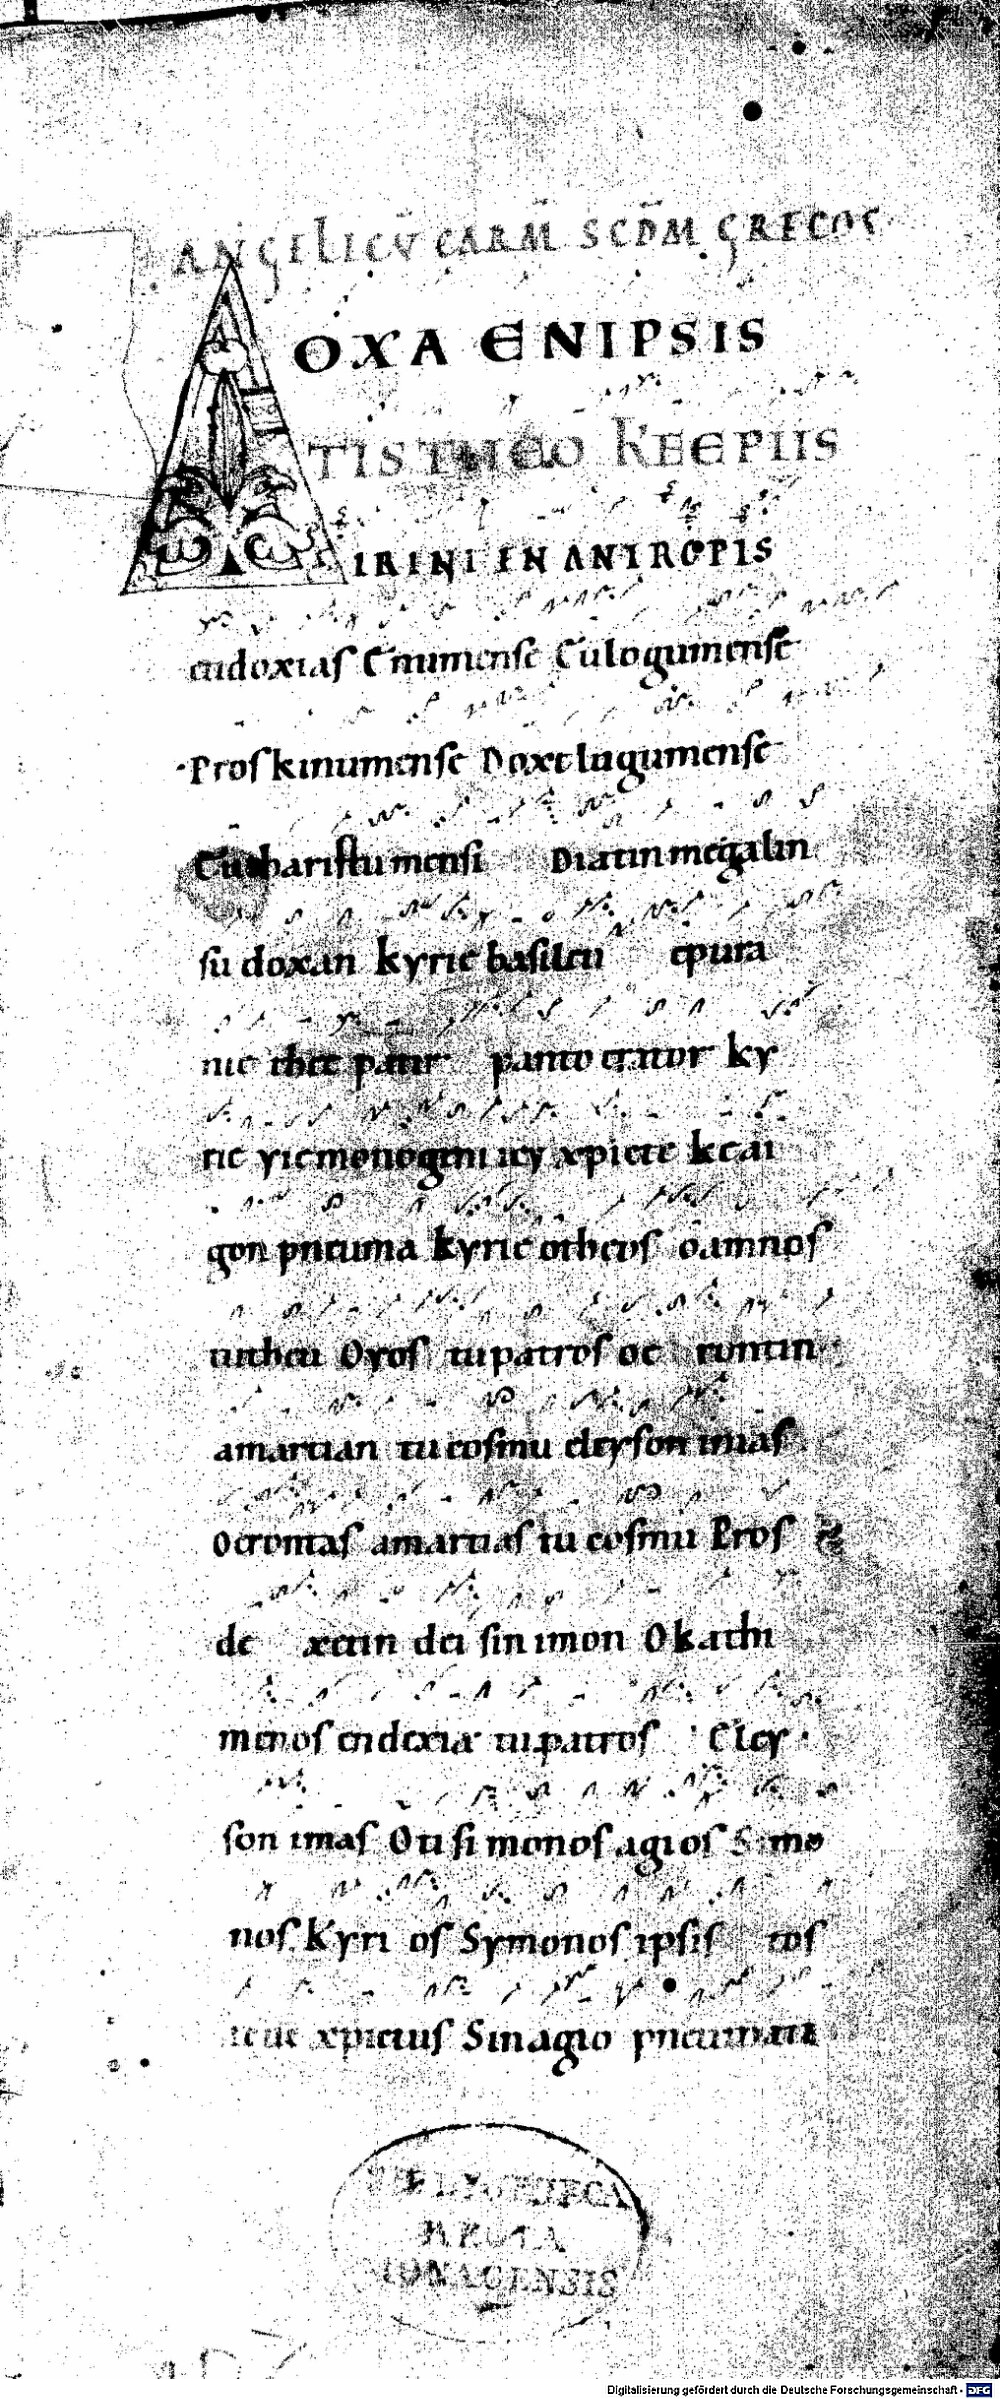 ANGELICŪ CARM̄ SCDM̄ GRECOS
ΔOXA ENIPSIS
TIS THEO KEEPIIS
IRINI EN ANTROPIS
eudoxias Enumense Eulogumense
Proskinumense Doxelugumense
Eucharistumensi Diatinmegalin
su doxan kyrie basileu epura
nie thee patir pantocrator ky
rie yie monogeni iey xpicte keai
gon pneuma kyrie otheos oamnos
tutheu Oyos tupatros oe rontin
amartian tu cosmu eleyson imas
Oerontas amartias tu cosmu Pros
de xetin dei sin imon O kathi
menos endexia tupatros Eley
son imas Oti si monos agios Symo
nos Kyri os Symonos ipsis tos
ieue xpictus Sinagio pneumati
BIBLIOTHECA
REGIA
MONACENSIS
Digitalisierung gefördert durch die Deutsche Forschungsgemeinschaft - DFG